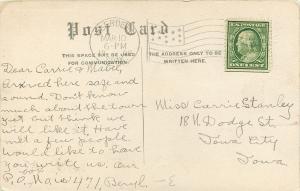 Post Card
MAR 10
6-PM
THIS SPACE MAY BE USED
FOR COMMUNICATION.
THE ADDRESS ONLY TO BE
WRITTEN HERE.
U.S. POSTAGE
ONE CENT
Dear Carrie & Mabel,
Arrived here safe and
sound. Don't know
much about the town
yet but think we
will like it. Have
met a few people.
Would like to have
you write us. Our
P.O. 471, Beryl - E
Miss Carrie Stanley
18 N. Dodge St.
Iowa City
Iowa